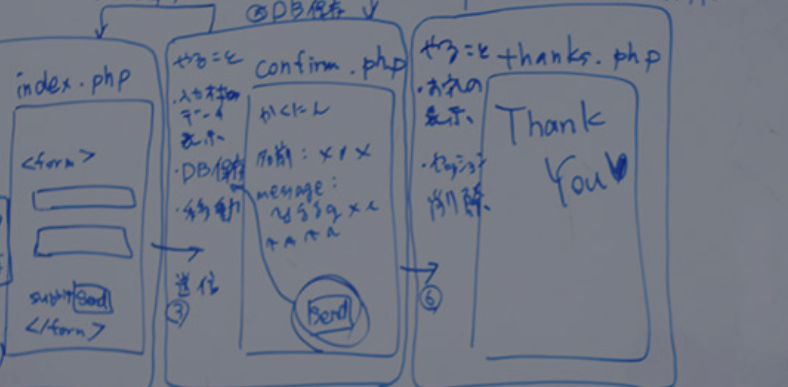 ⑤DB保存
index.php
<form>
submit Send
</form>
やること
・入力
データ
表示
・DB保存
・移動
送信
③
confirm.php
かくにん
名前:xxx
message:
Send
⑥
やること
・お礼の
表示
・セッション
削除
thanks.php
Thank
You